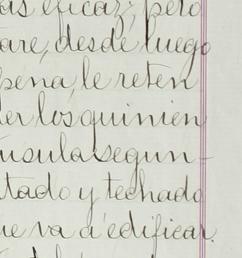 as eficaz; pero
are, desde luego
pena, le reten
er los quinien
usula segun-
tado y techado
ue va a edificar.